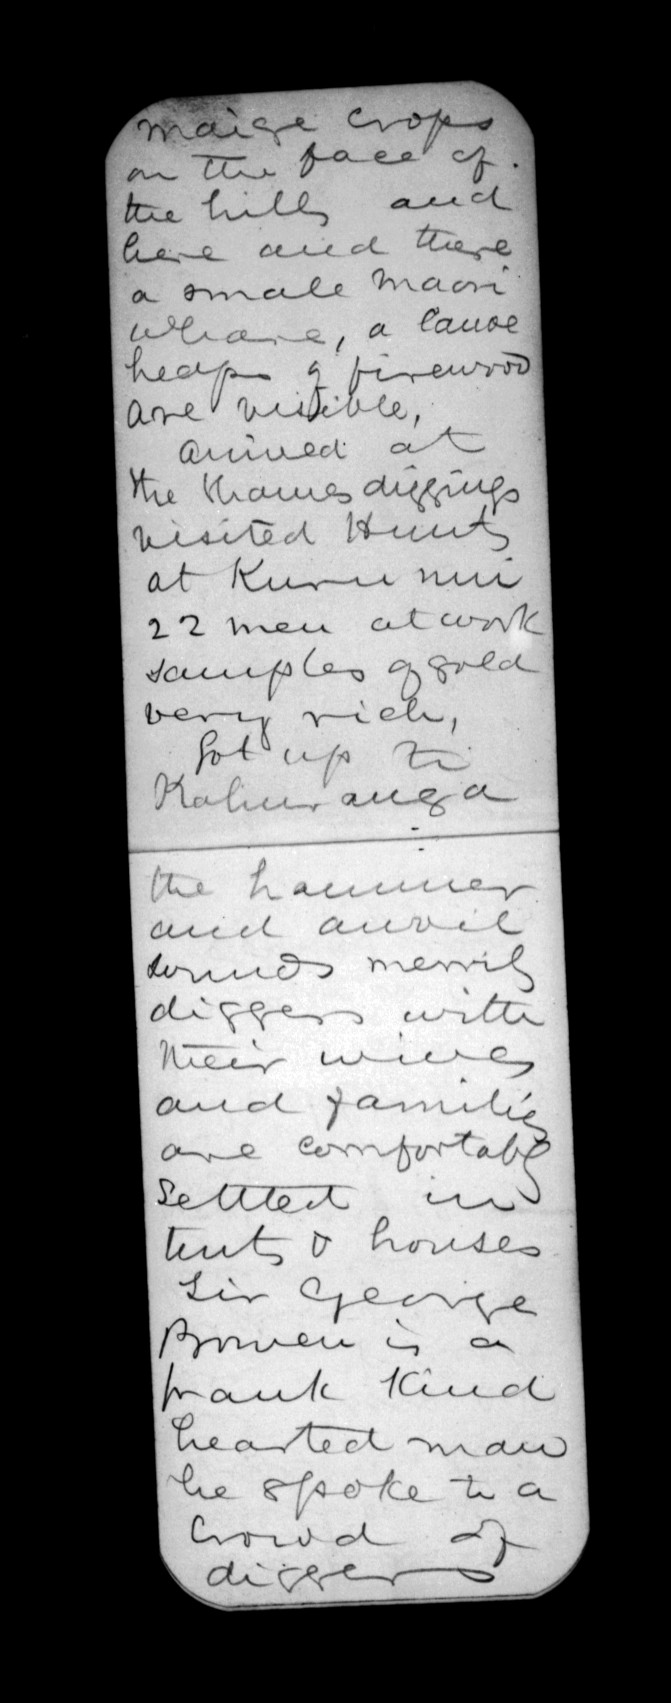 maize crops
on the face of
the hills and
here and there
a small maori
whare, a canoe
heaps of firewood
are visible,
arrived at
the Thames diggings
visited Hunts
at Kuranui
22 men at work
samples of gold
very rich,
Got up to
Kahuranga
the hammer
and anvil
sounds merrily
diggers with
their wives
and families
are comfortably
settled in
tents & houses
Sir George
Bowen is a
frank kind
hearted man
he spoke to a
crowd of
diggers